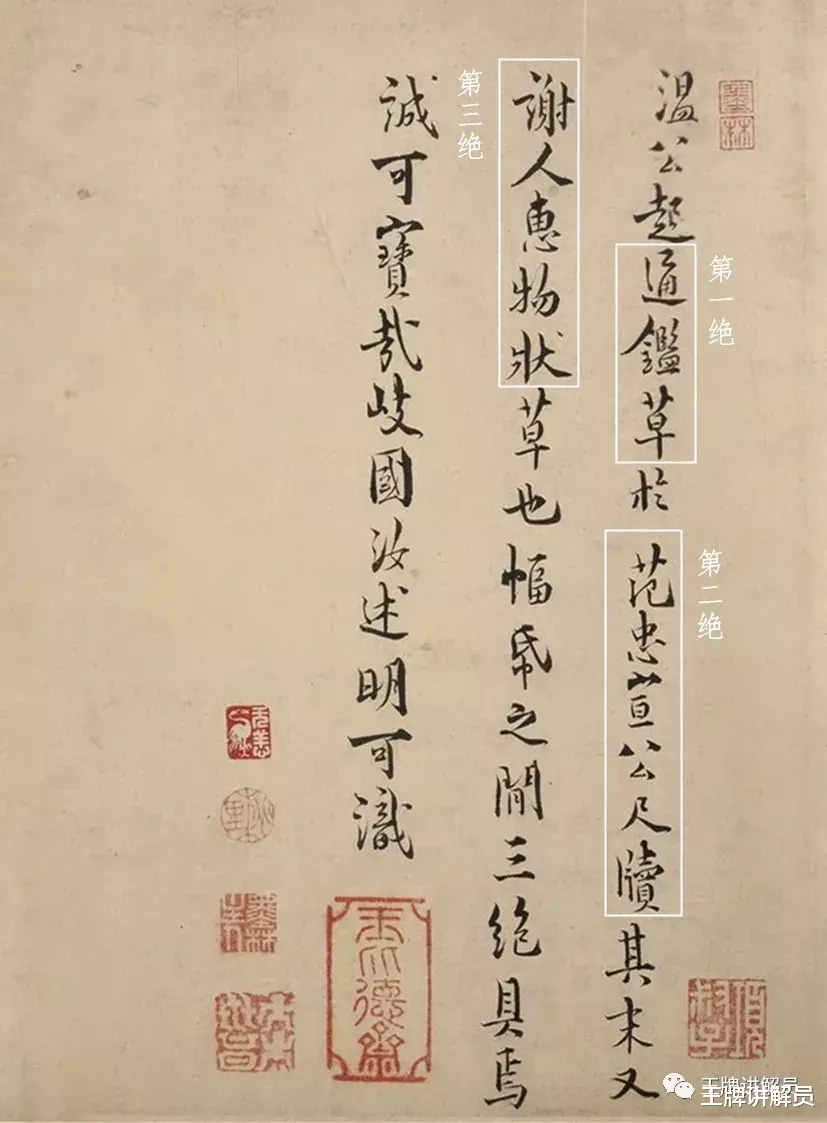 温公起通鑑草於范忠宣公尺牘其末又
謝人惠物狀草也幅帋之間三絶具焉
誠可寶哉歧國汝述明可識
第一绝
第二绝
第三绝
王牌讲解员